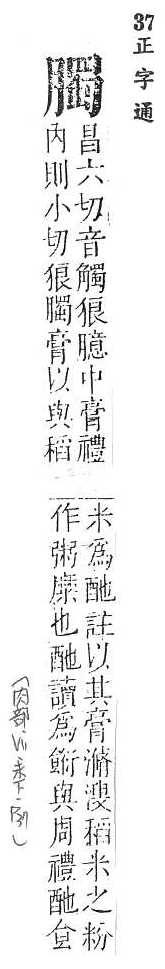 37正字通
臅
昌六切音觸狼臆中膏禮
內則小切狼臅膏以與稻
米爲酏註以其膏滫溲稻米之粉
作粥糜也酏讀爲餰與周禮酏食